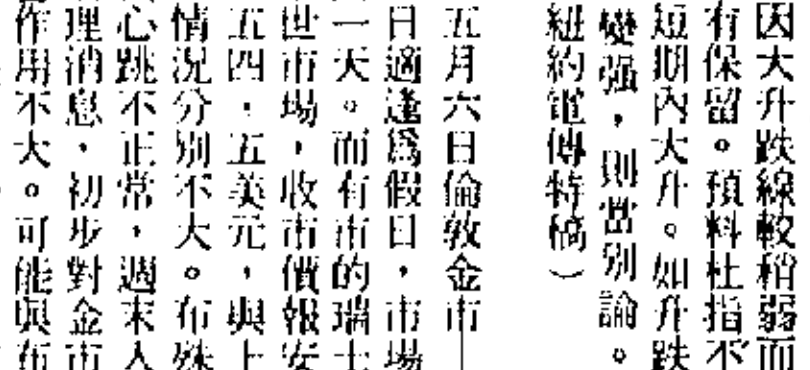 因大升跌線較稍弱而
有保留。預料杜指不
短期內大升。如升跌
變强，則當別論。
紐約電傳特稿）
五月六日倫敦金市
日適逢爲假日，市場
一天。而有市的瑞士
世市場，收市價報安
五四．五美元，與上
情況分別不大。布殊
心跳不正常，週末入
理消息，初步對金市
作用不大。可能與布